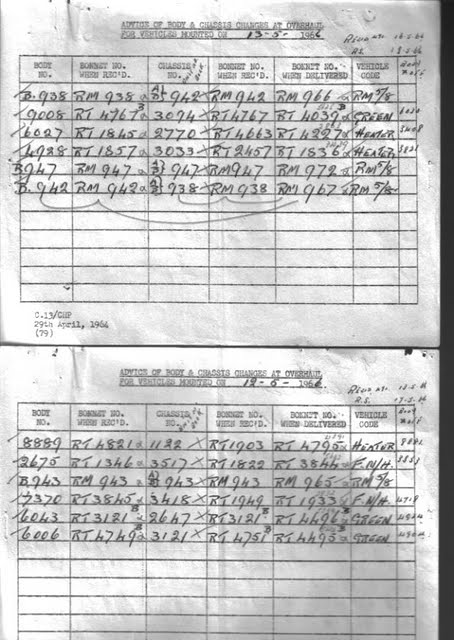 ADVICE OF BODY & CHASSIS CHANGES AT OVERHAUL
FOR VEHICLES MOUNTED ON 13-5- 1966
13.5.66
BODY NO. BONNET NO. WHEN REC'D. CHASSIS NO. BONNET NO. WHEN REC'D. BONNET NO. WHEN DELIVERED VEHICLE CODE
B.938 RM 938 942 RM 942 RM 966 RM 5/8
9008 RT 4767 3094 RT 4767 RT 4039 GREEN
6027 RT 1845 2770 RT 4663 RT 4227 HEATER
4928 RT 1857 3033 RT 2457 RT 1836 HEATER
B947 RM 947 947 RM 947 RM 972 RM 5/8
B.942 RM 942 938 RM 938 RM 967 RM 5/8
C.13/GHP
29th April, 1964
(79)
ADVICE OF BODY & CHASSIS CHANGES AT OVERHAUL
FOR VEHICLES MOUNTED ON 12-5- 1966
BODY NO. BONNET NO. WHEN REC'D. CHASSIS NO. BONNET NO. WHEN REC'D. BONNET NO. WHEN DELIVERED VEHICLE CODE
8889 RT 4821 1122 RT 1903 RT 4795 HEATER
2675 RT 1346 3517 RT 1822 RT 3844 F.N/H.
B.943 RM 943 943 RM 943 RM 965 RM 5/8
7370 RT 3845 3418 RT 1949 RT 1933 F.N/H.
6043 RT 3121 B 2647 RT 3121 B RT 4496 B GREEN
6006 RT 4749 3121 RT 4751 RT 4495 GREEN